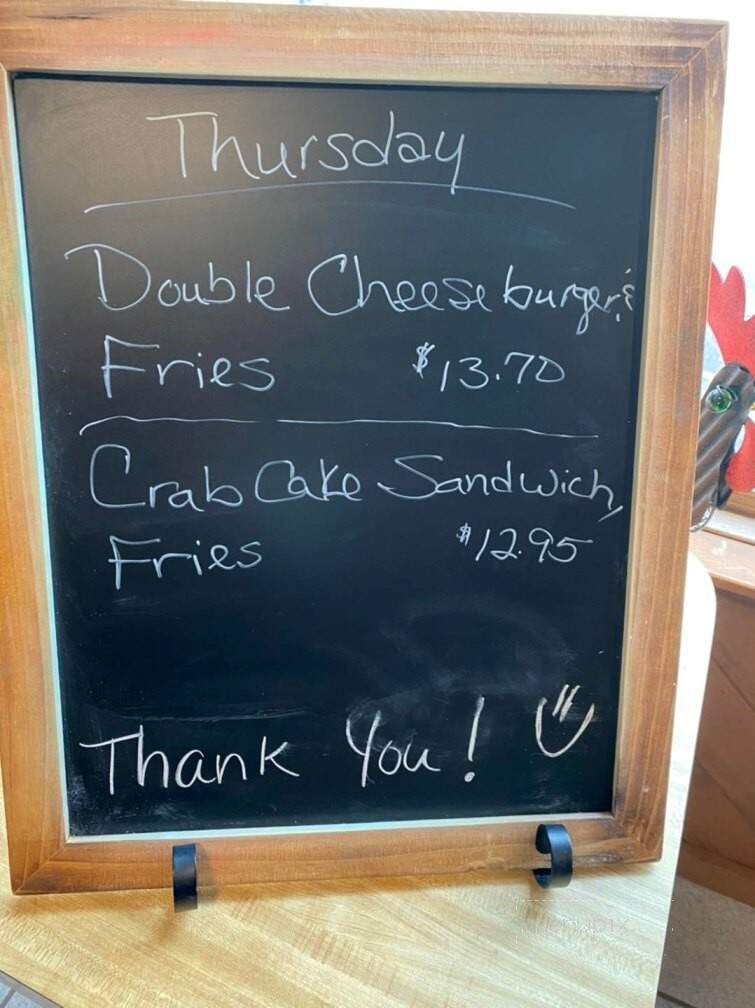 Thursday
Double Cheeseburger, &
Fries $13.70
Crab Cake Sandwich,
Fries $12.95
Thank You!